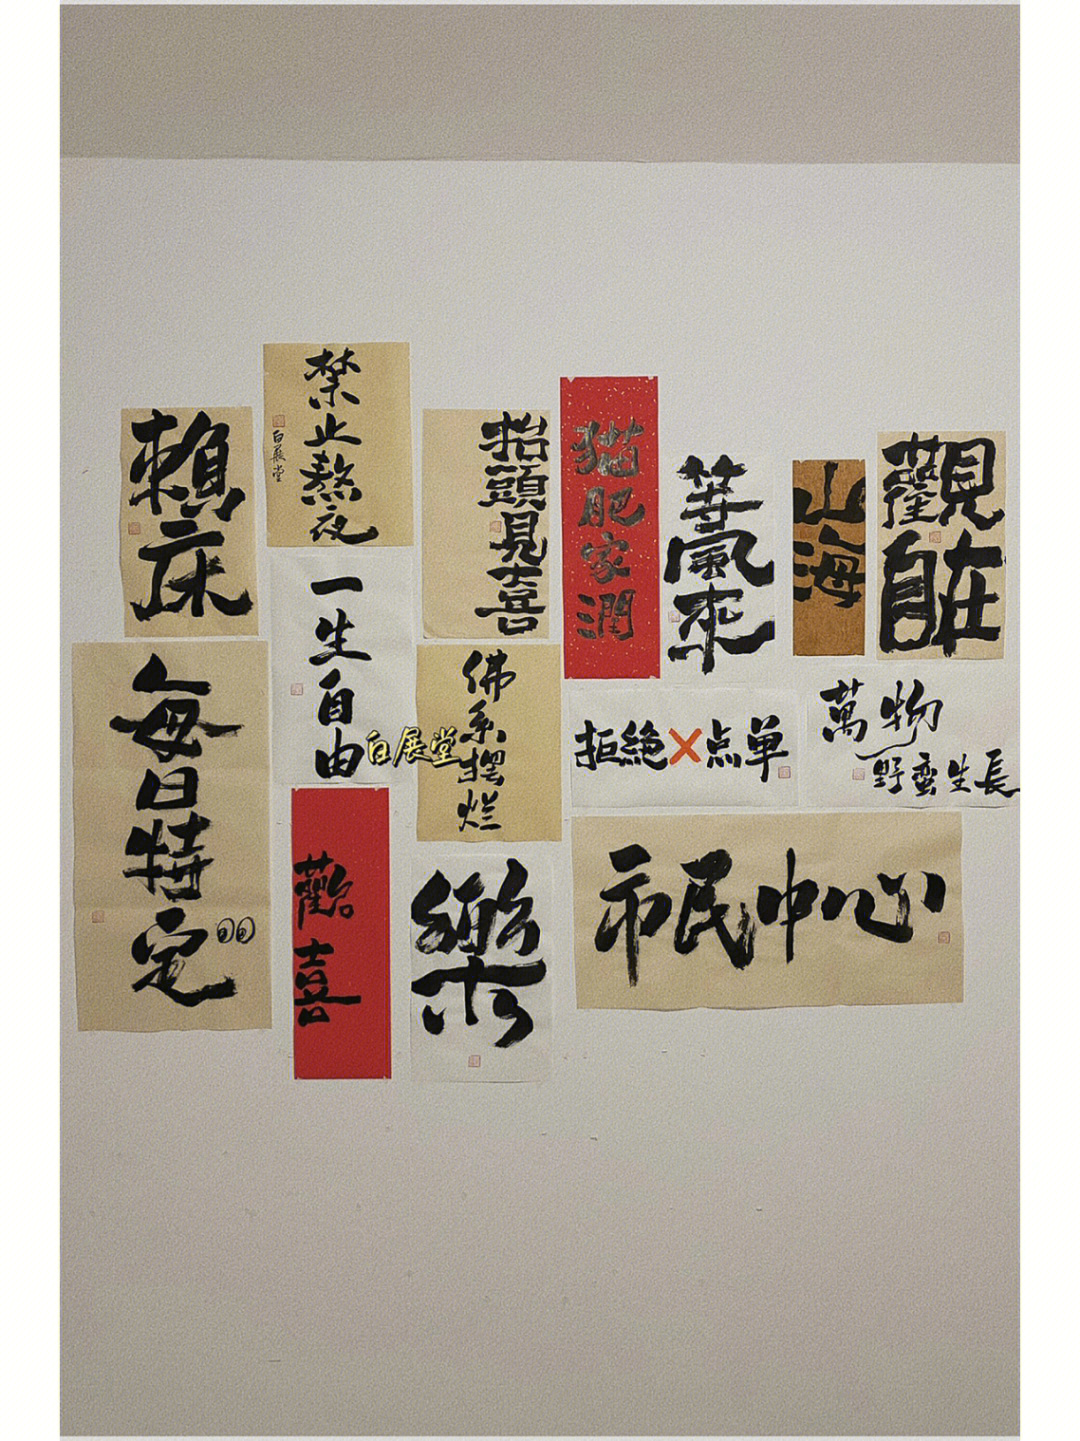 賴床
禁止熬夜
白展堂
抬頭見喜
猫肥家潤
等風來
山海
觀自在
每日特定
一生自由
白展堂
佛系摆烂
拒絶❌点单
萬物
野蛮生長
歡喜
樂
市民中心